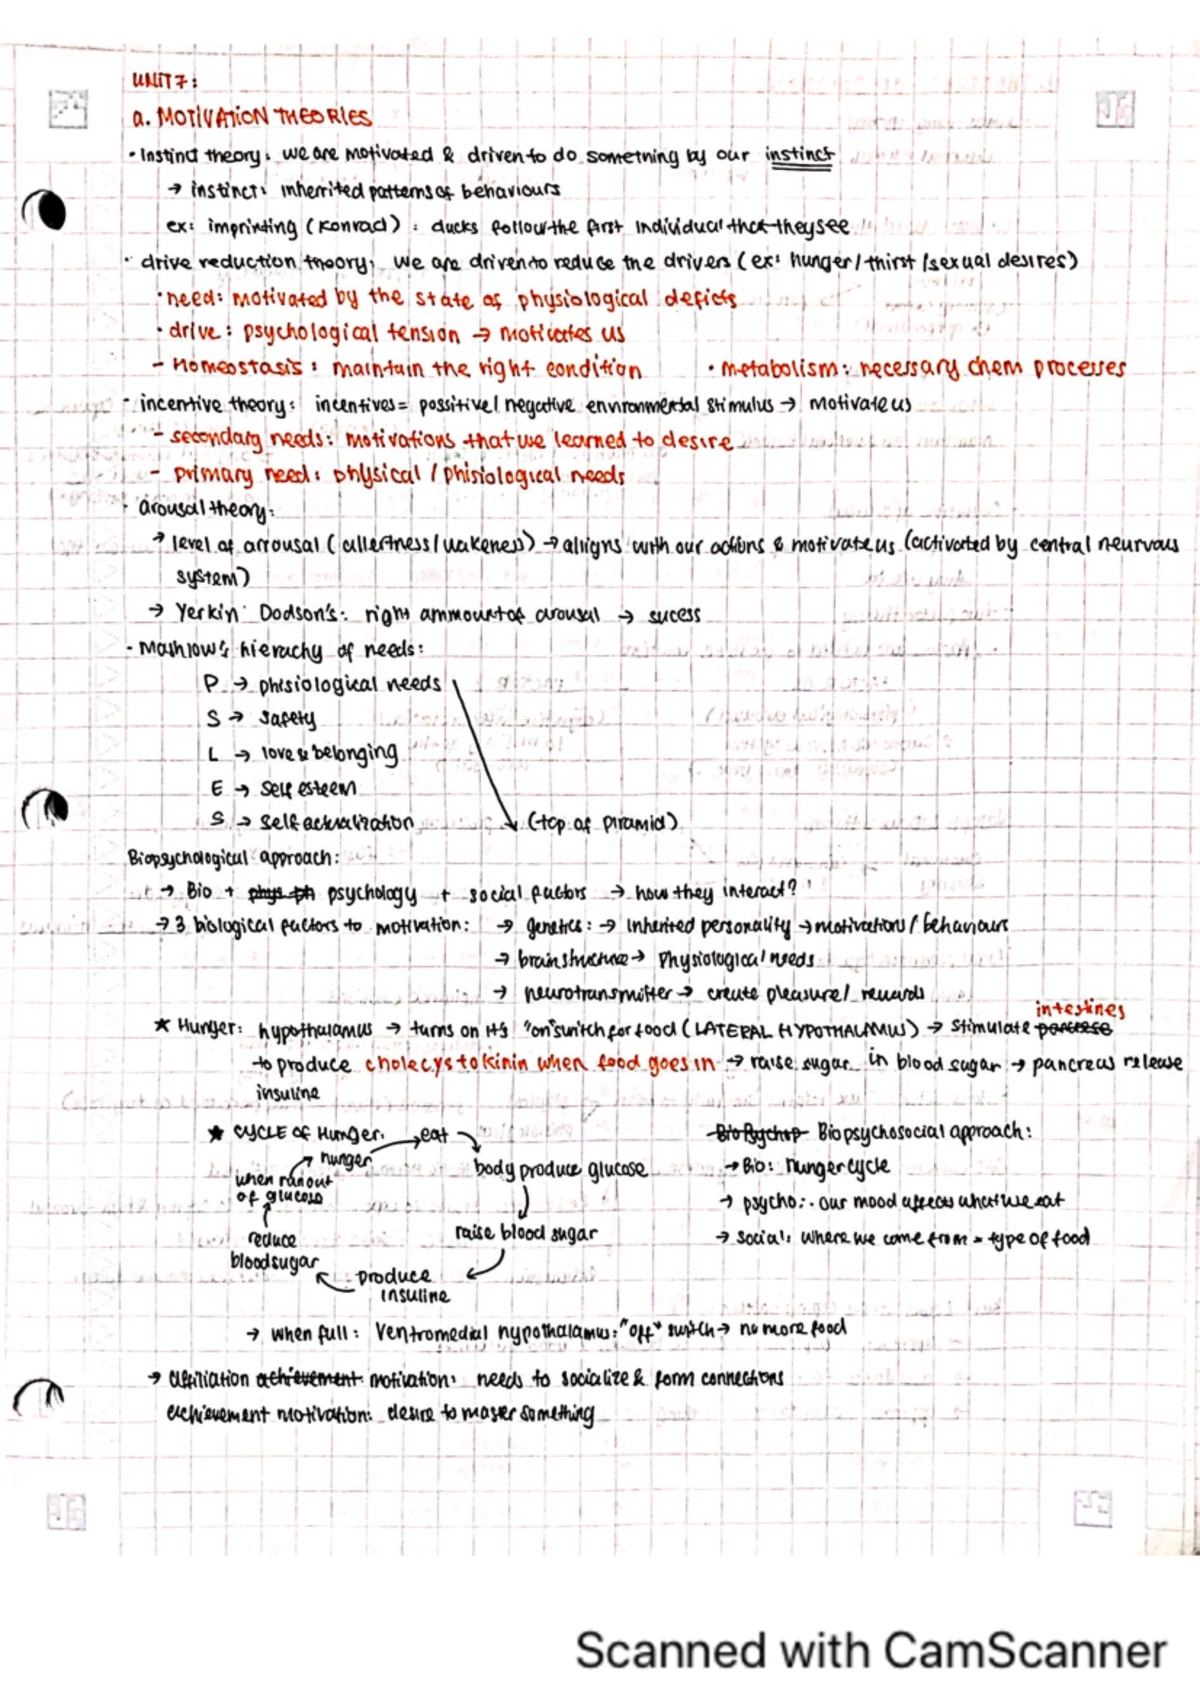 UNIT 7:
a. MOTIVATION THEORIES
• Instinct theory: we are motivated & driven to do something by our instinct
→ instinct: inherrited patterns of behaviours
ex: imprinting (Konrad): ducks follow the first individual that they see
• drive reduction theory: we are driven to reduce the drivers (ex: hunger / thirst / sexual desires)
• need: motivated by the state of physiological deficts
• drive: psychological tension → motivates us
- Homeostasis: maintain the right condition • metabolism: necessary chem processes
• incentive theory: incentives = possitive / negative environmental stimulus → motivate us
- secondary needs: motivations that we learned to desire
- primary need: physical / phisiological needs
• arousal theory:
→ level of arrousal (allertness / wakeness) → alligns with our actions & motivate us (activated by central neurvous
system)
→ Yerkin Dodson's: right ammount of arousal → sucess
- Mashlow's hierachy of needs:
P → phisiological needs
S → safety
L → love & belonging
E → self esteem
S → self actualization (top of piramid)
Biopsychological approach:
→ Bio + phys ph psychology + social factors → how they interact?
→ 3 biological factors to motivation: → genetics: → inherited personality → motivations / behaviours
→ brain structure → physiological needs
→ neurotransmitter → create pleasure / rewards
intestines
★ Hunger: hypothalamus → turns on it's "on" switch for food (LATERAL HYPOTHALAMUS) → stimulate
to produce cholecystokinin when food goes in → raise sugar in blood sugar → pancreas release
insuline
★ CYCLE OF Hunger: eat Biopsychosocial approach:
hunger body produce glucose → Bio: hunger cycle
when ran out
of glucose → psycho: our mood affects what we eat
reduce raise blood sugar → social: where we come from = type of food
blood sugar produce
insuline
→ when full: ventromedial hypothalamus: "off" switch → no more food
→ affiliation achievement motivation: needs to socialize & form connections
achievement motivation: desire to maser something
Scanned with CamScanner